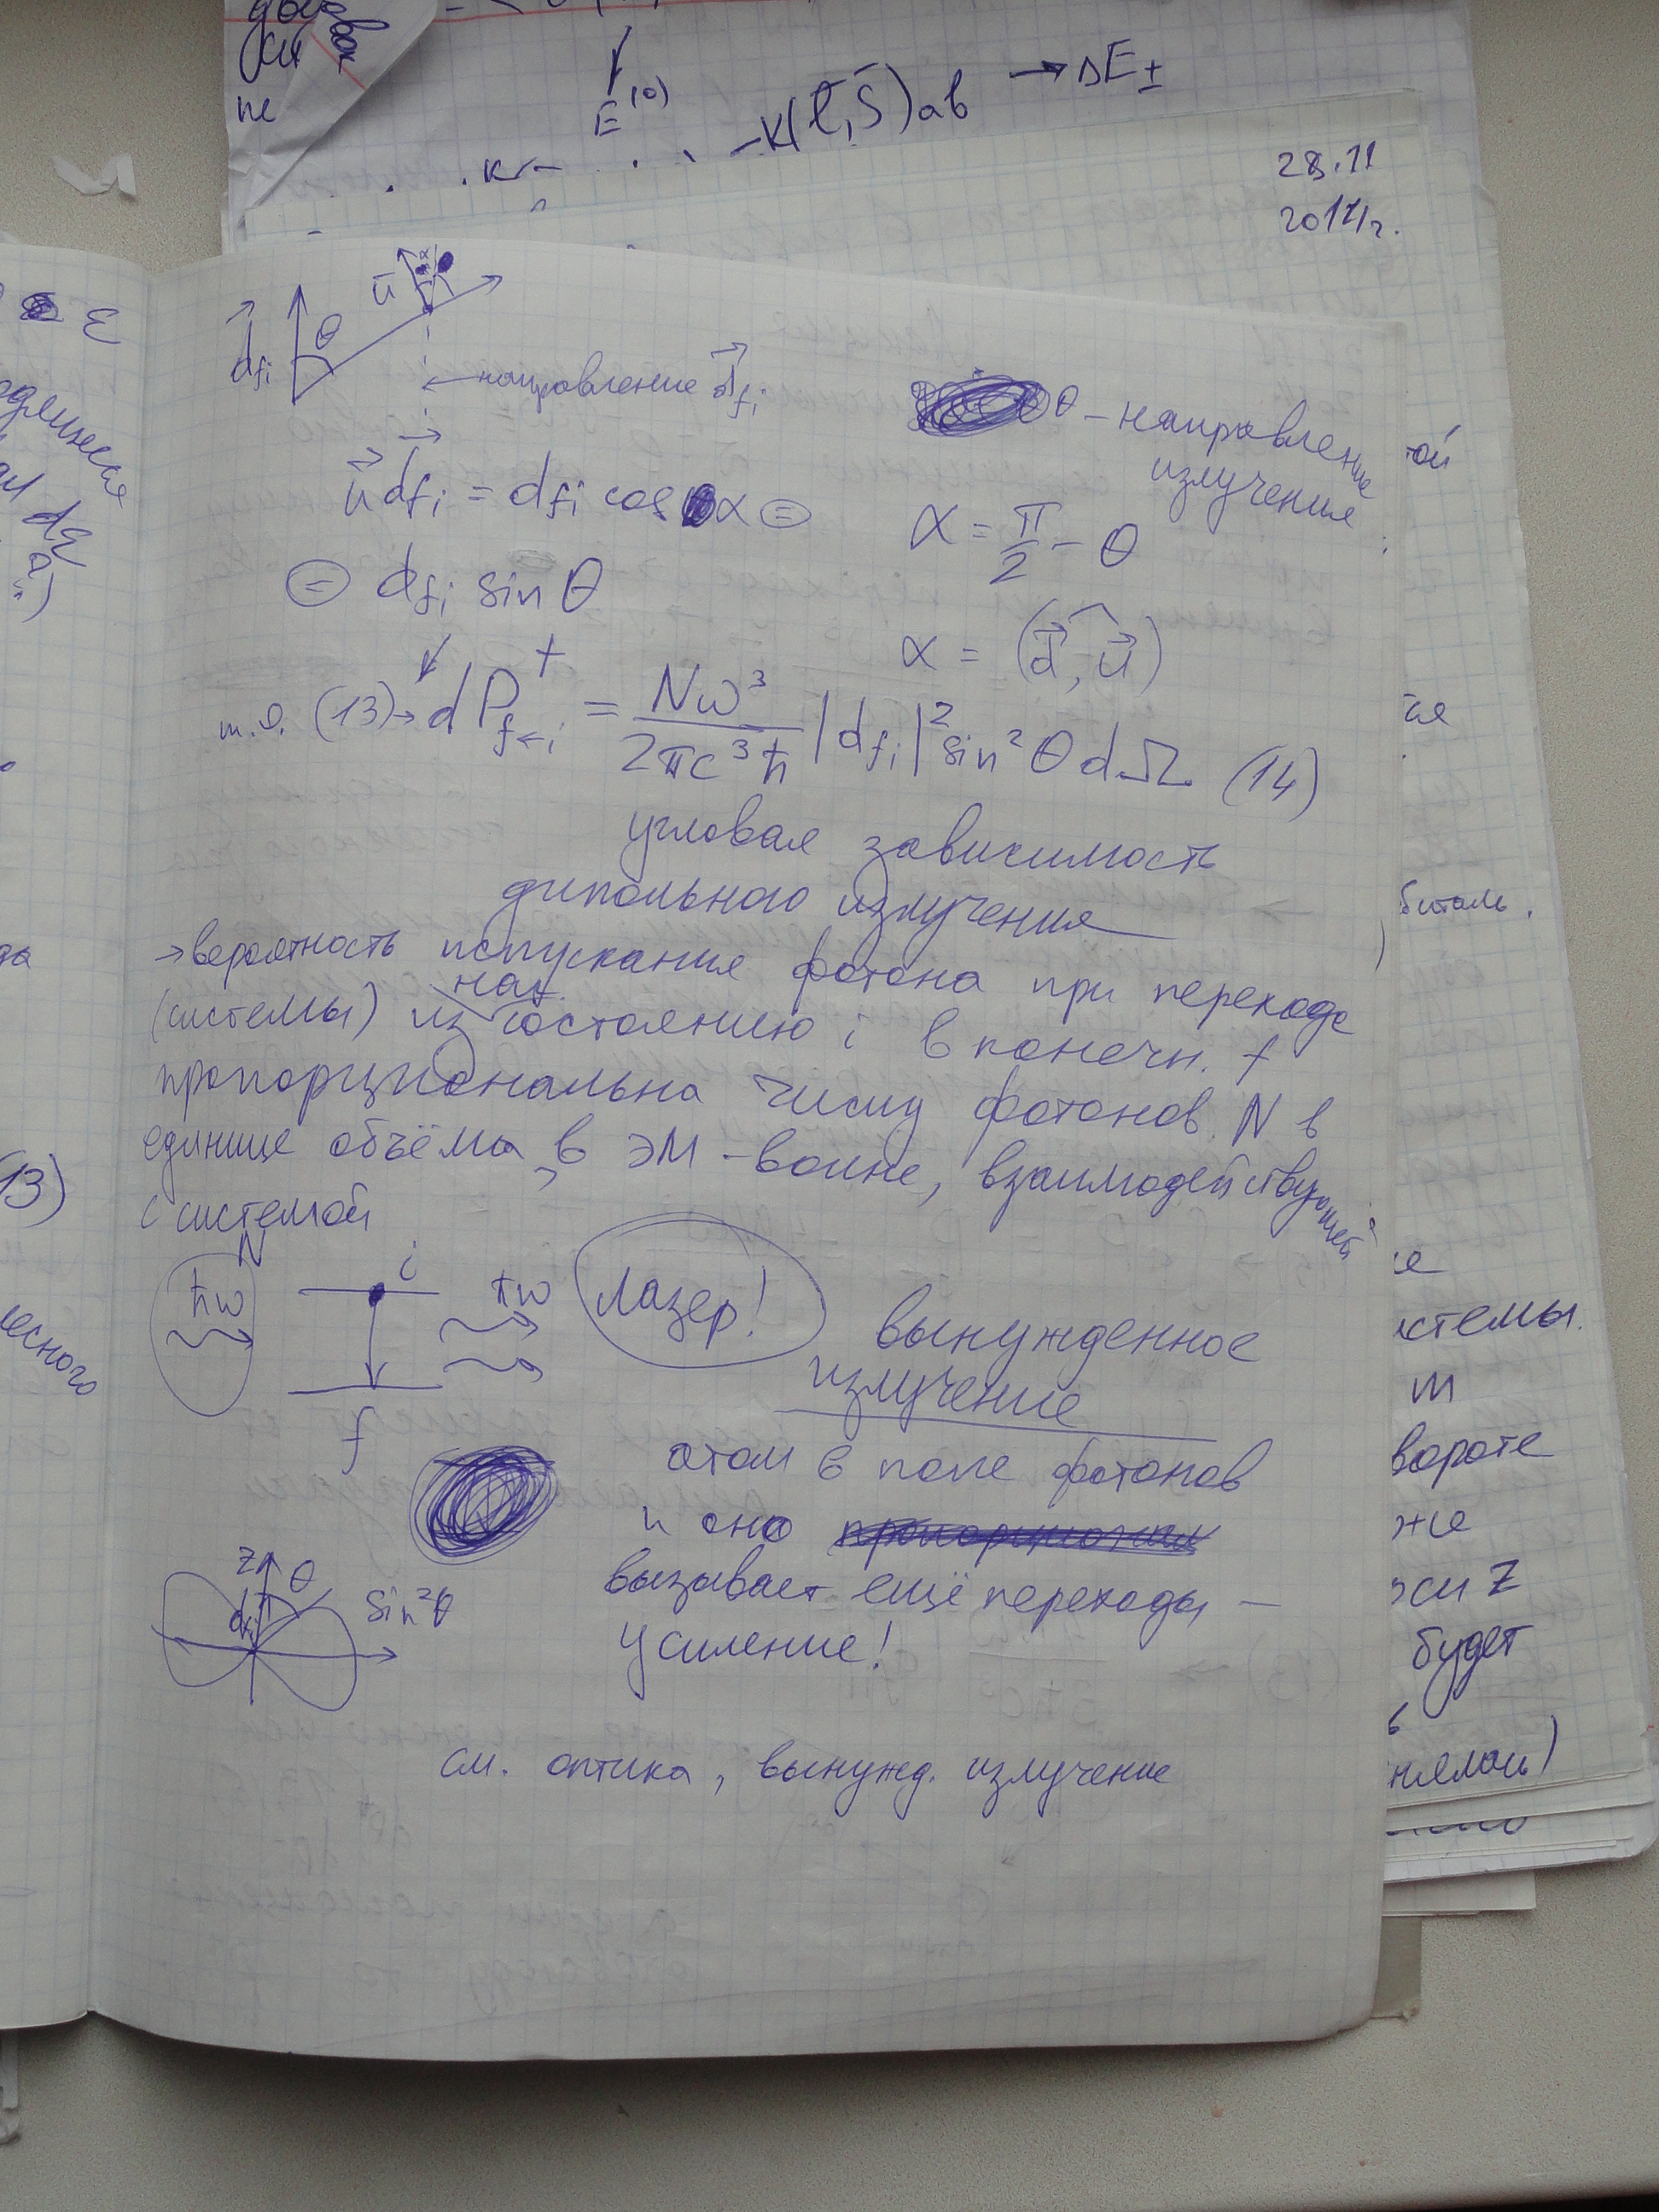 E⁽⁰⁾
-K(l̄,s̄)ab → ΔE±
28.11
2017г.
ū
θ
d⃗fi
← направление d⃗fi
θ – направление
излучения
u⃗ d⃗fi = dfi cos α =
α = π/2 - θ
= dfi sin θ
α = (d⃗,^u⃗)
т.о. (13) → dP⁺f←i = Nω³/2πc³ħ |dfi|² sin²θ dΩ (14)
угловая зависимость
дипольного излучения
→ вероятность испускания фотона при переходе
нач.
(системы) из состоянию i в конечн. f
пропорциональна числу фотонов N в
единице объёма, в ЭМ-волне, взаимодействующей
с системой
N
ħω
i
ħω
f
Лазер!
вынужденное
излучение
атом в поле фотонов
и оно
вызывает ещё переходы –
усиление!
z
θ
dfi
sin²θ
см. оптика, вынужд. излучение
ε
dq
(13)
есного
ой
битал.
стемы.
m
вороте
же
оси z
будет